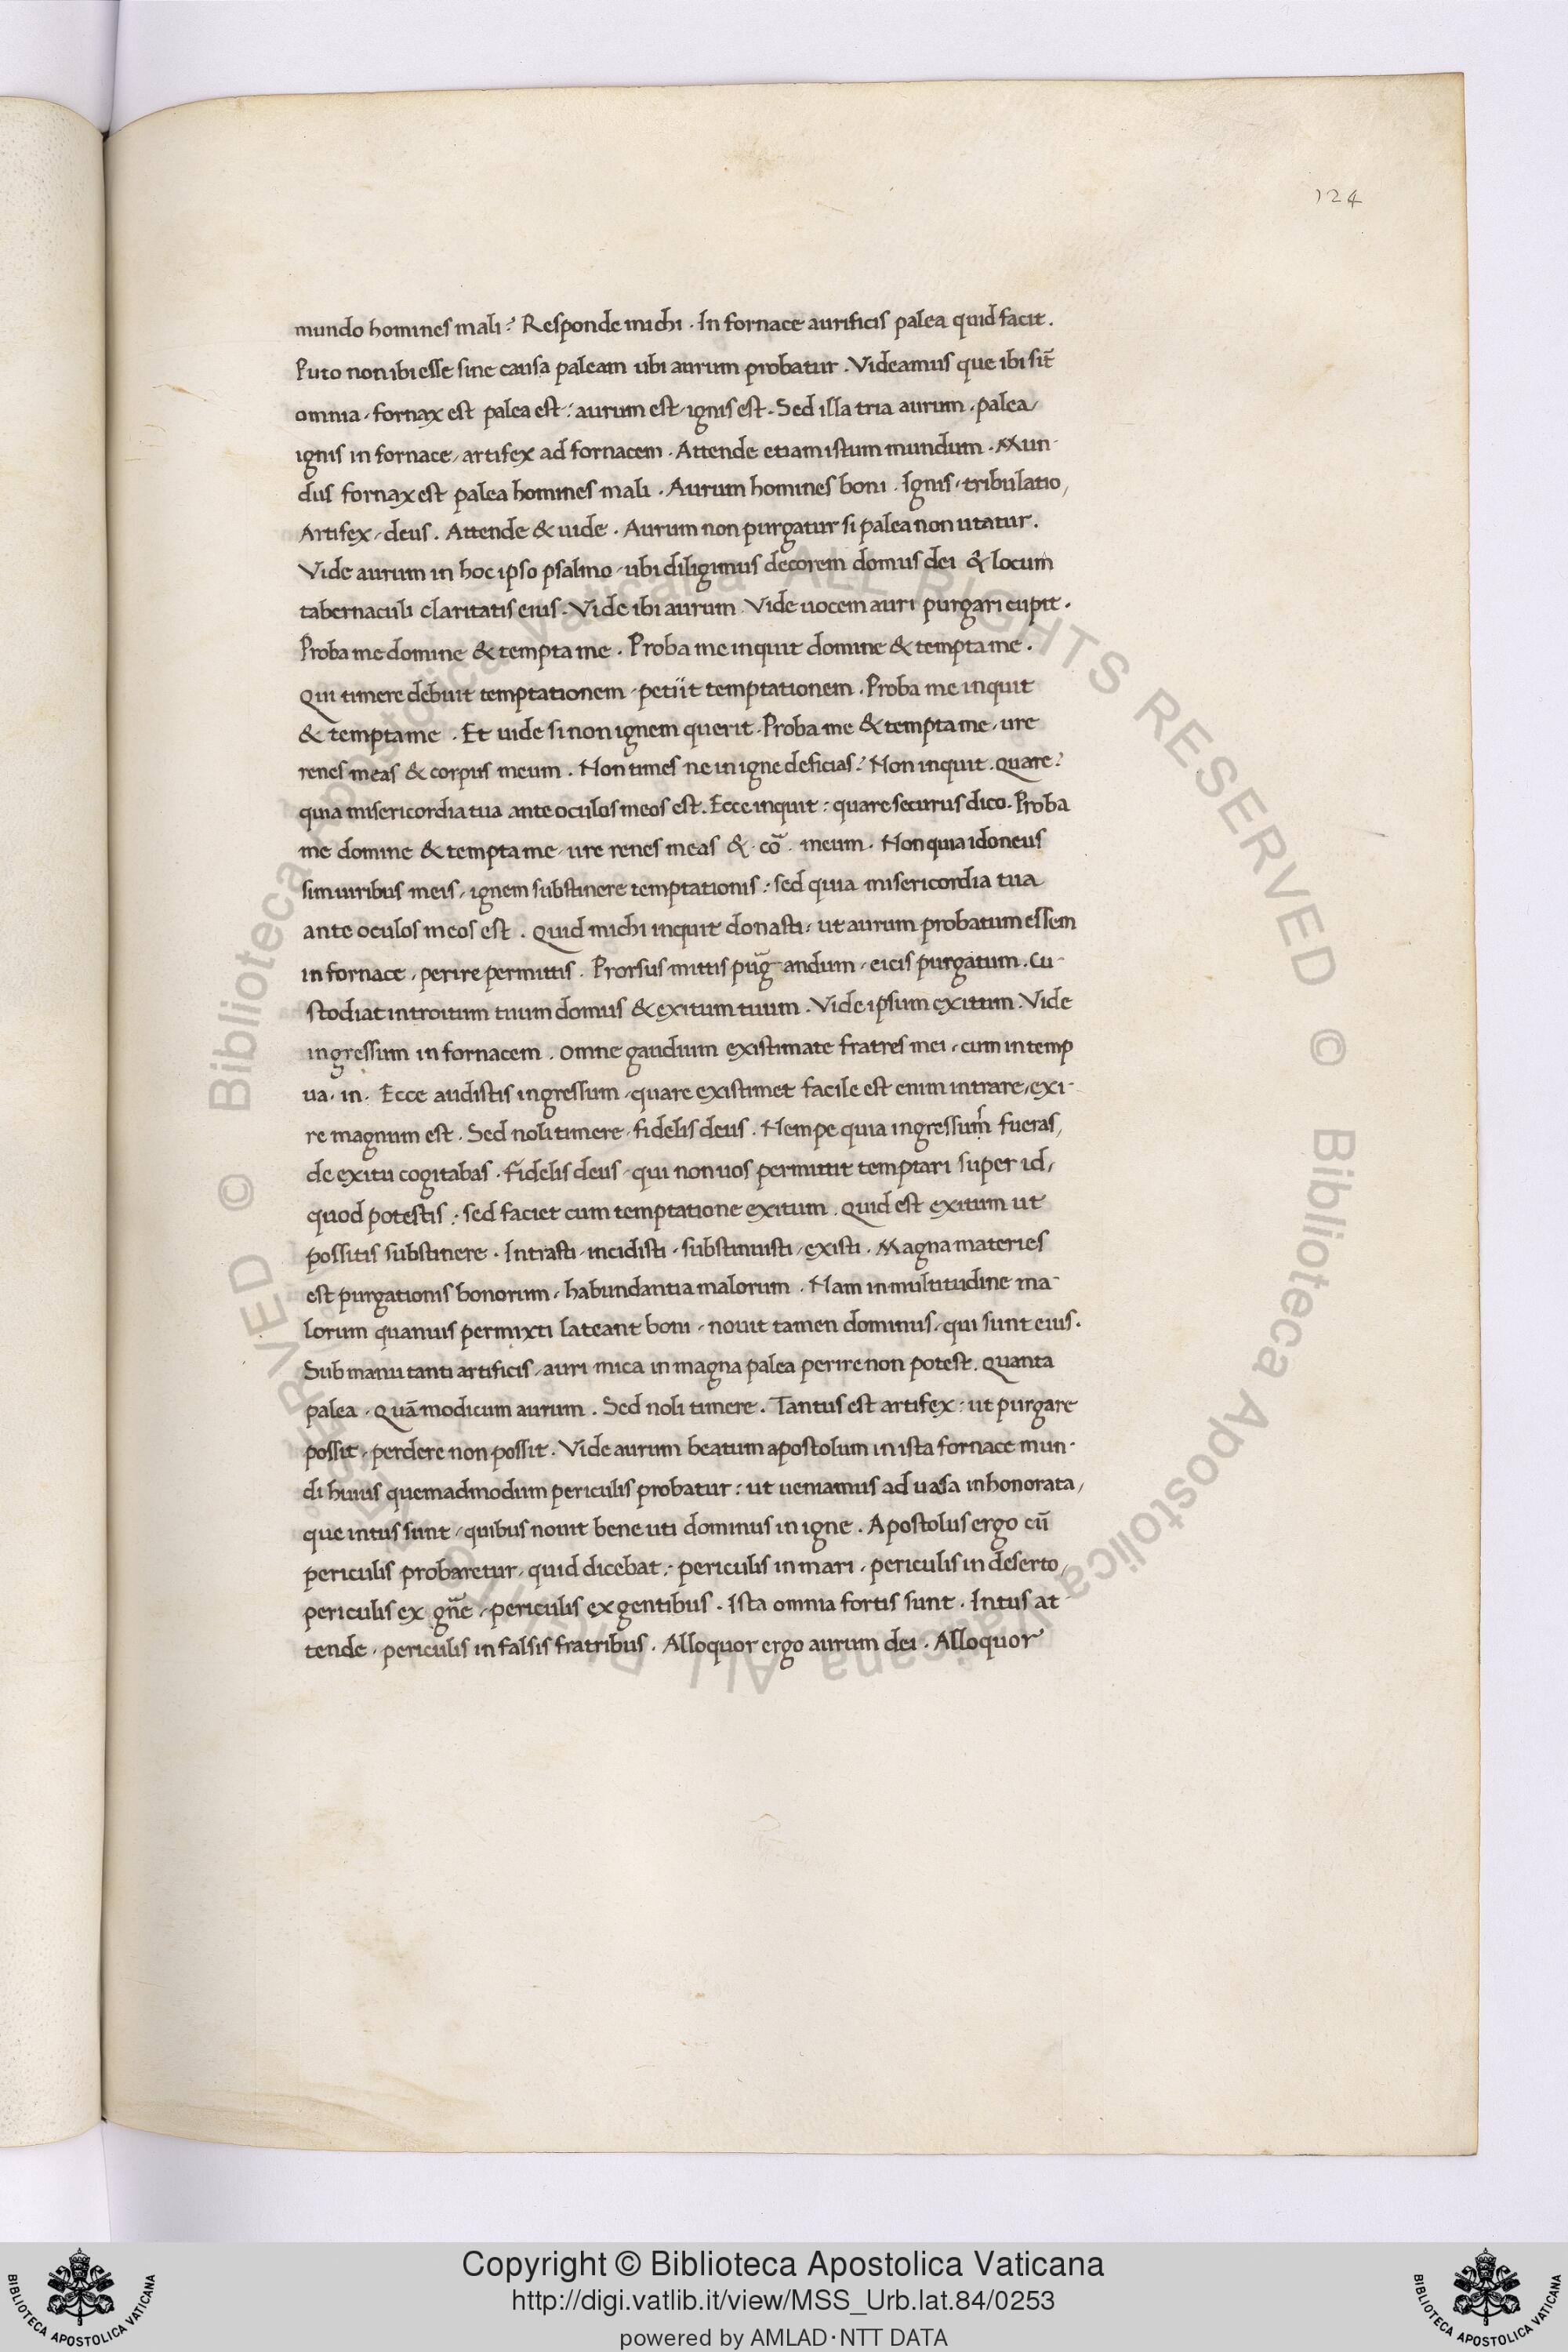 124
mundo homines mali? Responde michi. In fornace aurificis palea quid facit.
Puto non ibi esse sine causa paleam ubi aurum probatur. Videamus que ibi sīt
omnia. fornax est palea est: aurum est, ignis est. Sed illa tria aurum. palea,
ignis in fornace, artifex ad fornacem. Attende etiam istum mundum. Mun-
dus fornax est palea homines mali. Aurum homines boni. Ignis, tribulatio,
Artifex, deus. Attende & uide. Aurum non purgatur si palea non utatur.
Vide aurum in hoc ipso psalmo, ubi diligimus decorem domus dei & locum
tabernaculi claritatis eius. Vide ibi aurum. Vide uocem auri purgari cupit.
Proba me domine & tempta me. Proba me inquit domine & tempta me.
Qui timere debuit temptationem, petiit temptationem. Proba me inquit
& tempta me. Et uide si non ignem querit. Proba me & tempta me, ure
renes meas & corpus meum. Non times ne in igne deficias? Non inquit. quare?
quia misericordia tua ante oculos meos est. Ecce inquit: quare securus dico. Proba
me domine & tempta me, ure renes meas &. cō. meum. Non quia idoneus
sim uiribus meis, ignem substinere temptationis: sed quia misericordia tua
ante oculos meos est. Quid michi inquit donasti, ut aurum probatum essem
in fornace, perire permittis. Prorsus mittis pūg-andum, eicis purgatum. Cu-
stodiat introitum tuum domus & exitum tuum. Vide ipsum exitum. Vide
ingressum in fornacem. Omne gaudium existimate fratres mei, cum in temp
ua. in. Ecce audistis ingressum, quare existimet facile est enim intrare, exi-
re magnum est. Sed noli timere, fidelis deus. Nempe quia ingressum fueras,
de exitu cogitabas. Fidelis deus, qui non uos permittit temptari super id,
quod potestis: sed faciet cum temptatione exitum. Quid est exitum ut
possitis substinere. Intrasti, incidisti, substinuisti, existi. Magna materies
est purgationis bonorum, habundantia malorum. Nam in multitudine ma-
lorum quanuis permixti lateant boni, nouit tamen dominus, qui sunt eius.
Sub manu tanti artificis, auri mica in magna palea perire non potest. Quanta
palea, Quā modicum aurum. Sed noli timere. Tantus est artifex: ut purgare
possit, perdere non possit. Vide aurum beatum apostolum in ista fornace mun-
di huius quemadmodum periculis probatur: ut ueniamus ad uasa inhonorata,
que intus sunt, quibus nouit bene uti dominus in igne. Apostolus ergo cū
periculis probaretur, quid dicebat: periculis in mari, periculis in deserto,
periculis ex gn̄e, periculis ex gentibus. Ista omnia fortis sunt. Intus at-
tende, periculis in falsis fratribus. Alloquor ergo aurum dei. Alloquor
© Biblioteca Apostolica Vaticana ALL RIGHTS RESERVED © Biblioteca Apostolica Vaticana ALL RIGHTS RESERVED
BIBLIOTECA APOSTOLICA VATICANA
Copyright © Biblioteca Apostolica Vaticana
http://digi.vatlib.it/view/MSS_Urb.lat.84/0253
powered by AMLAD·NTT DATA
BIBLIOTECA APOSTOLICA VATICANA